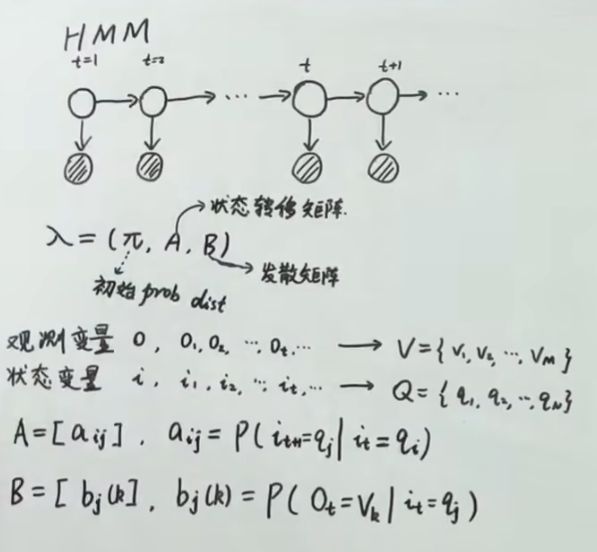 HMM
t=1 t=2 t t+1
... ...
状态转移矩阵.
λ = (π, A, B)
发散矩阵
初始 prob dist
观测变量 O, O₁, O₂, ..., Oₜ, ... → V = {v₁, v₂, ..., v_M}
状态变量 i, i₁, i₂, ..., iₜ, ... → Q = {q₁, q₂, ..., q_N}
A = [a_ij], a_ij = P(i_t+1 = q_j | i_t = q_i)
B = [b_j(k)], b_j(k) = P(O_t = V_k | i_t = q_j)